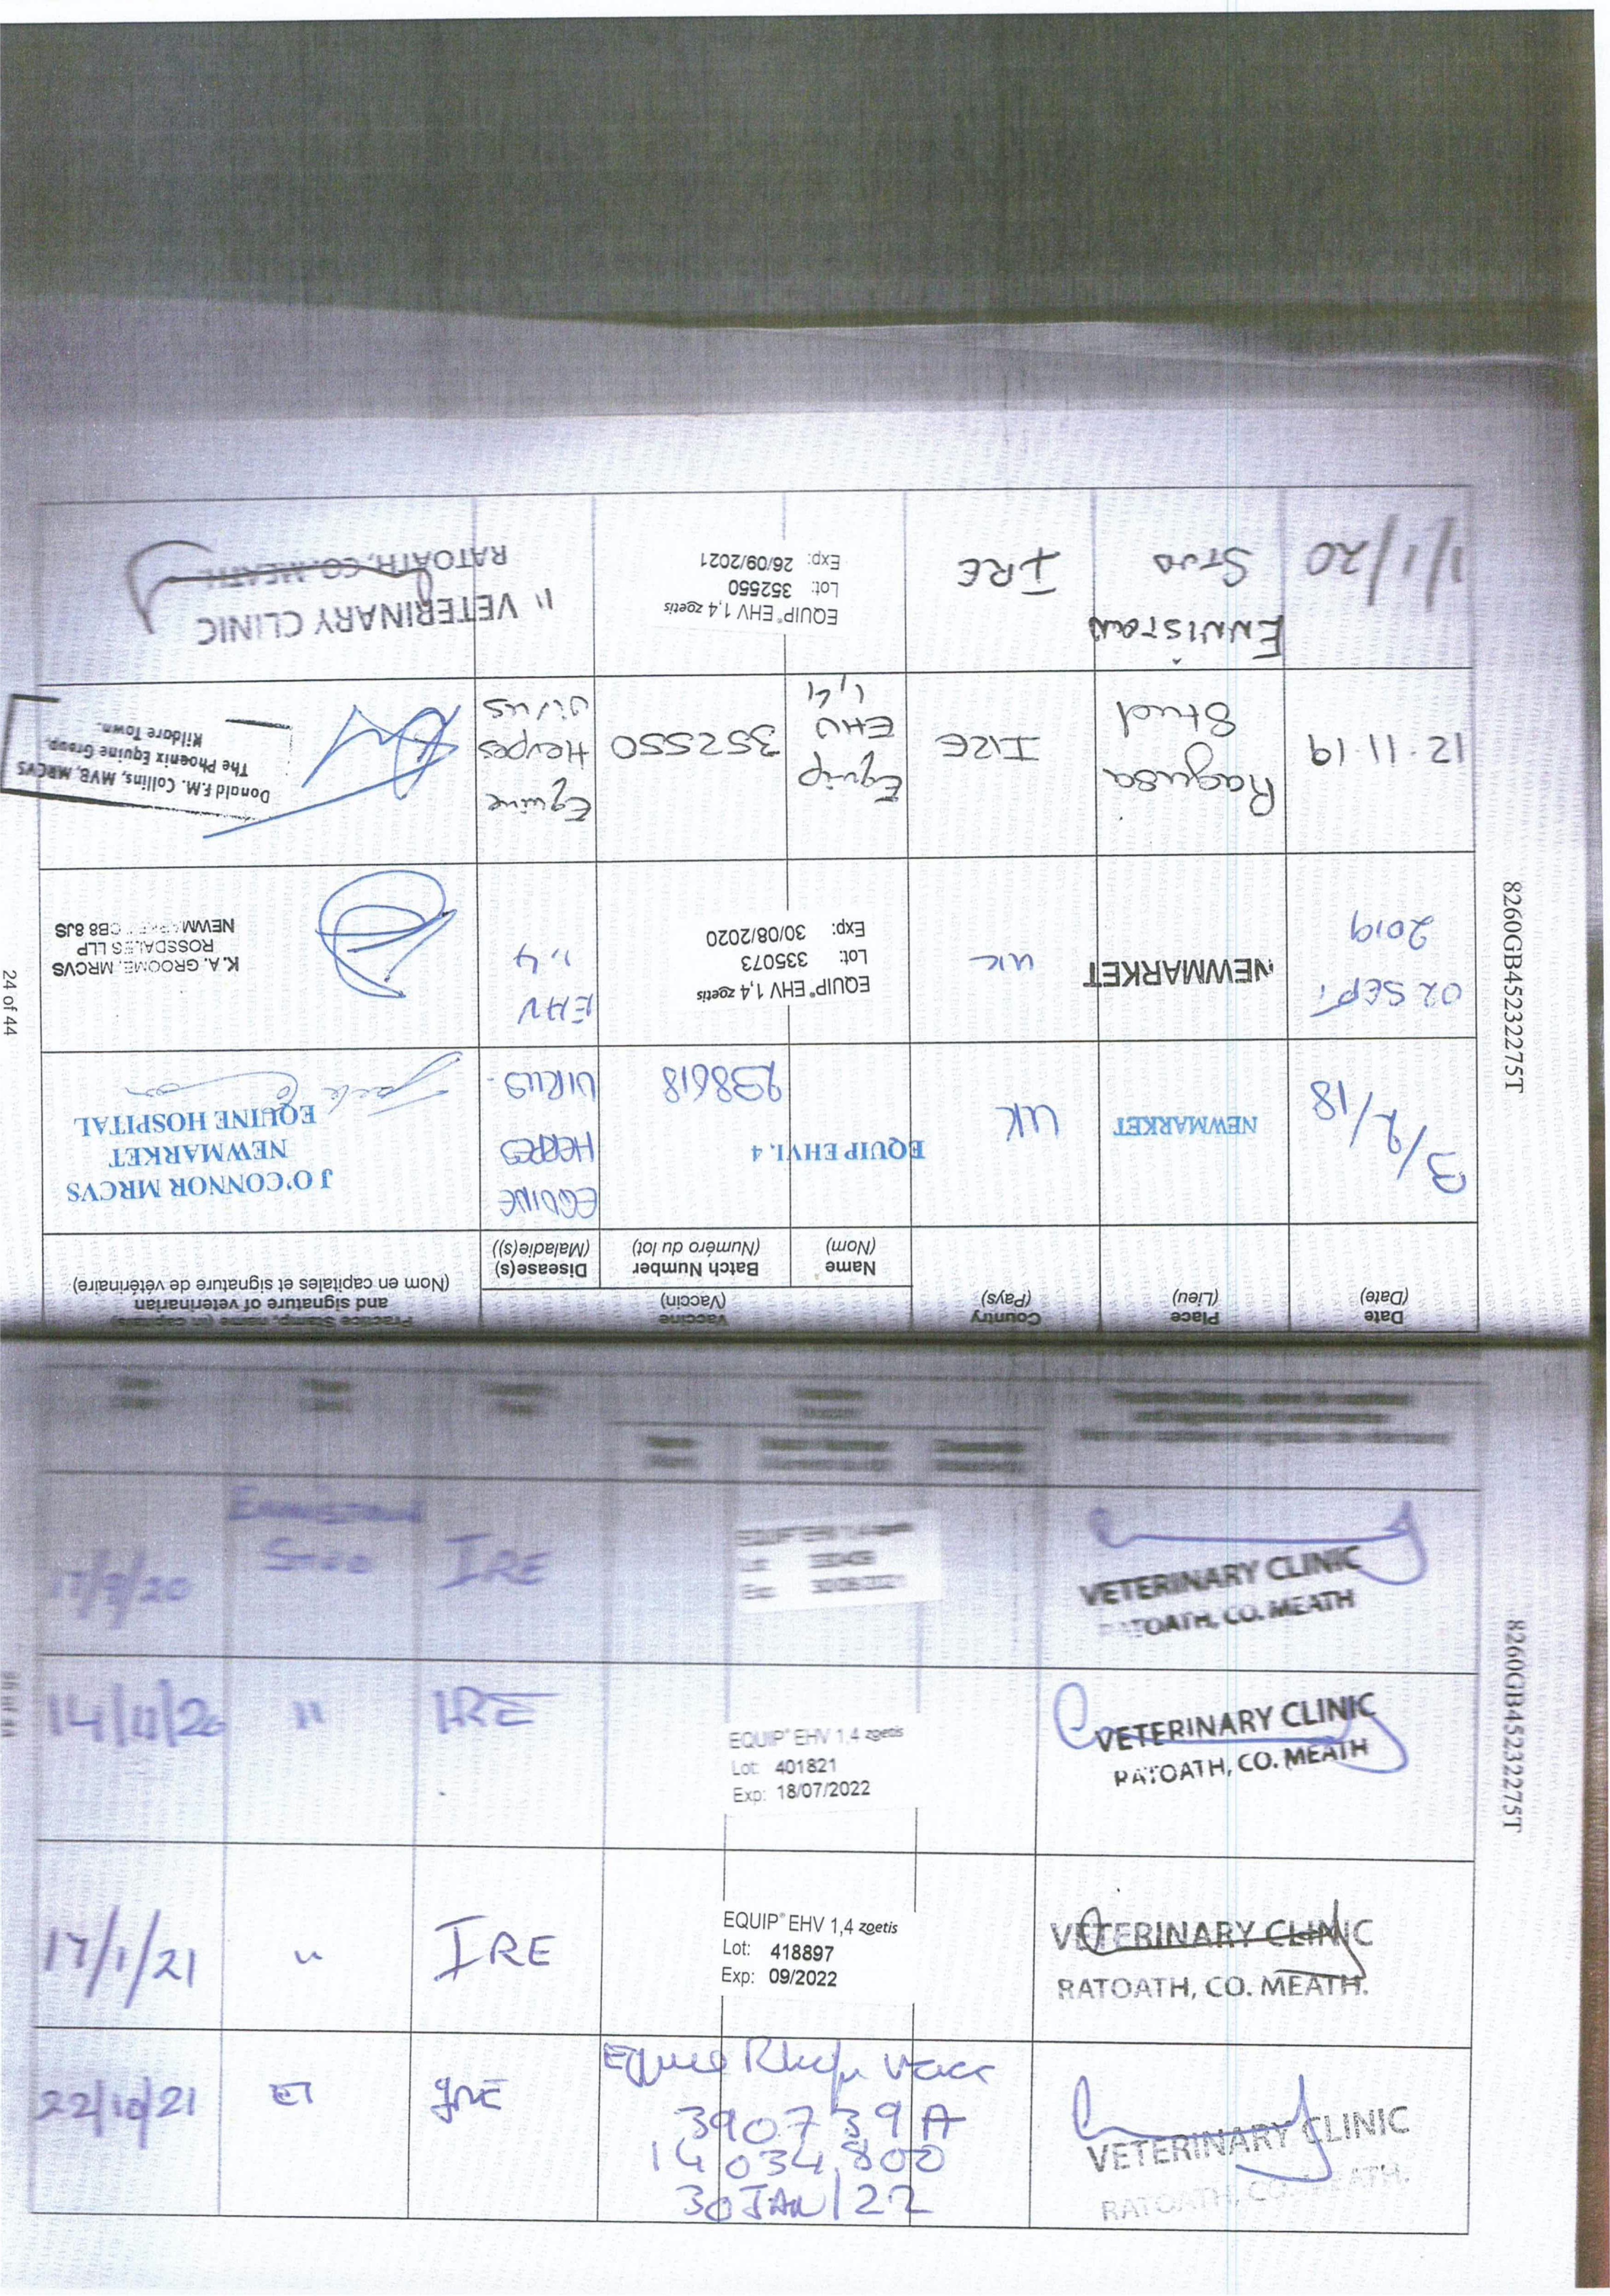 8260GB45232275T
24 of 44
Date
(Date)
Place
(Lieu)
Country
(Pays)
Vaccine
(Vaccin)
Name
(Nom)
Batch Number
(Numéro du lot)
Disease(s)
(Maladie(s))
Practice Stamp, name (in capitals)
and signature of veterinarian
(Nom en capitales et signature de vétérinaire)
3/2/18
NEWMARKET
UK
EQUIP EHV1, 4
238618
EQUINE
HERPES
VIRUS.
J O'CONNOR MRCVS
NEWMARKET
EQUINE HOSPITAL
02 SEPT.
2019
NEWMARKET
UK
EQUIP® EHV 1,4 zoetis
Lot: 335073
Exp: 30/08/2020
EHV
1,4
K.A. GROOME, MRCVS
ROSSDALES LLP
NEWMARKET CB8 8JS
12.11.19
Ragusa
Stud
IRE
Equip
EHV
1,4
352550
Equine
Herpes
Virus
Donald F.M. Collins, MVB, MRCVS
The Phoenix Equine Group,
Kildare Town.
1/1/20
ENNISTOWN
STUD
IRE
EQUIP® EHV 1,4 zoetis
Lot: 352550
Exp: 26/09/2021
"
VETERINARY CLINIC
RATOATH, CO. MEATH
8260GB45232275T
17/9/20
Ennistown
Stud
IRE
EQUIP® EHV 1,4 zoetis
Lot:
Exp:
VETERINARY CLINIC
RATOATH, CO. MEATH
14/11/20
"
IRE
EQUIP® EHV 1,4 zoetis
Lot: 401821
Exp: 18/07/2022
VETERINARY CLINIC
RATOATH, CO. MEATH
17/1/21
"
IRE
EQUIP® EHV 1,4 zoetis
Lot: 418897
Exp: 09/2022
VETERINARY CLINIC
RATOATH, CO. MEATH.
22/10/21
IRE
390739A
14034.800
30 JAN/22
VETERINARY CLINIC
RATOATH, CO. MEATH.